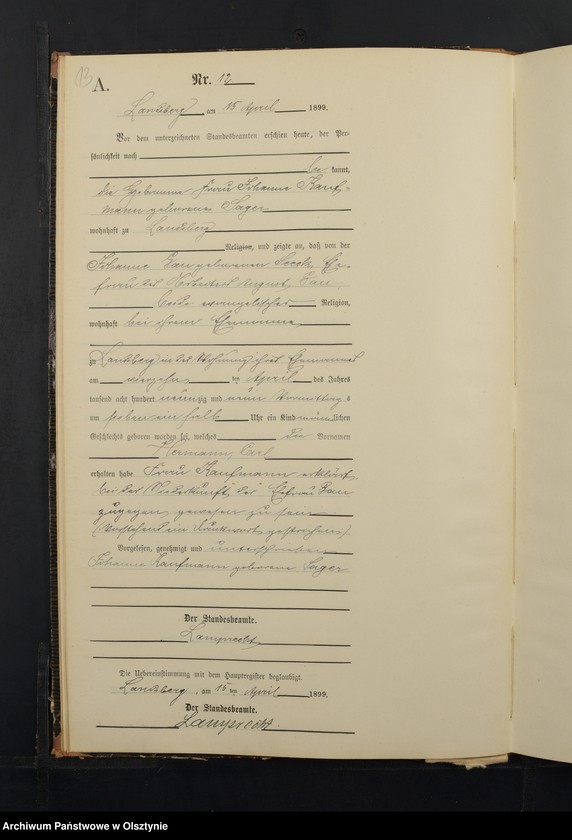 13
A.
Nr. 12
Landsberg, am 15 April 1899.
Vor dem unterzeichneten Standesbeamten erschien heute, der Per-
sönlichkeit nach
be kannt,
die Hebamme Frau Johanne Kauf-
mann geborene Sager
wohnhaft zu Landsberg
Religion, und zeigte an, daß von der
Johanne geborenen Ehe-
frau des Arbeiters August
beide evangelischer Religion,
wohnhaft bei ihrem Ehemanne
zu Landsberg in der Wohnung ihres Ehemannes
am vierzehn ten April des Jahres
tausend acht hundert neunzig und neun Vormittag s
um sieben ein halb Uhr ein Kind männ lichen
Geschlechts geboren worden sei, welches die Vornamen
Hermann, Carl
erhalten habe. Frau Kaufmann erklärt,
bei der Niederkunft der Ehefrau
zugegen gewesen zu sein
(Vorstehend ein Druckwort gestrichen)
Vorgelesen, genehmigt und unterschrieben
Johanne Kaufmann geborene Sager
Der Standesbeamte.
Lamprecht
Die Uebereinstimmung mit dem Hauptregister beglaubigt.
Landsberg, am 15 ten April 1899.
Der Standesbeamte.
Lamprecht.
Archiwum Państwowe w Olsztynie